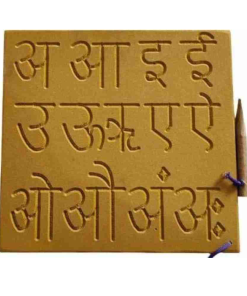 अ आ इ ई
उ ऊ ऋ ए ऐ
ओ औ अं अः